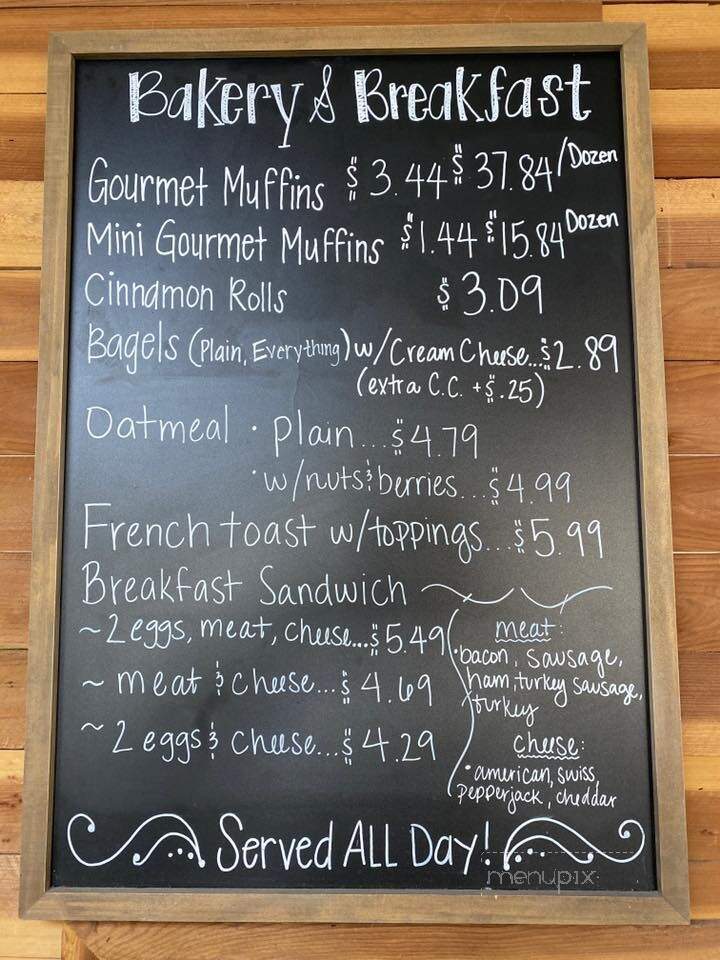 Bakery & Breakfast
Gourmet Muffins $3.44 $37.84/Dozen
Mini Gourmet Muffins $1.44 $15.84 Dozen
Cinnamon Rolls $3.09
Bagels (Plain, Everything) w/Cream Cheese...$2.89
(extra C.C. +$.25)
Oatmeal · plain...$4.79
· w/nuts & berries...$4.99
French toast w/toppings...$5.99
Breakfast Sandwich
~2 eggs, meat, cheese...$5.49
~ meat & cheese...$4.69
~ 2 eggs & cheese...$4.29
meat:
· bacon, sausage,
ham, turkey sausage,
turkey
cheese:
· american, swiss,
pepperjack, cheddar
Served ALL Day!
menupix